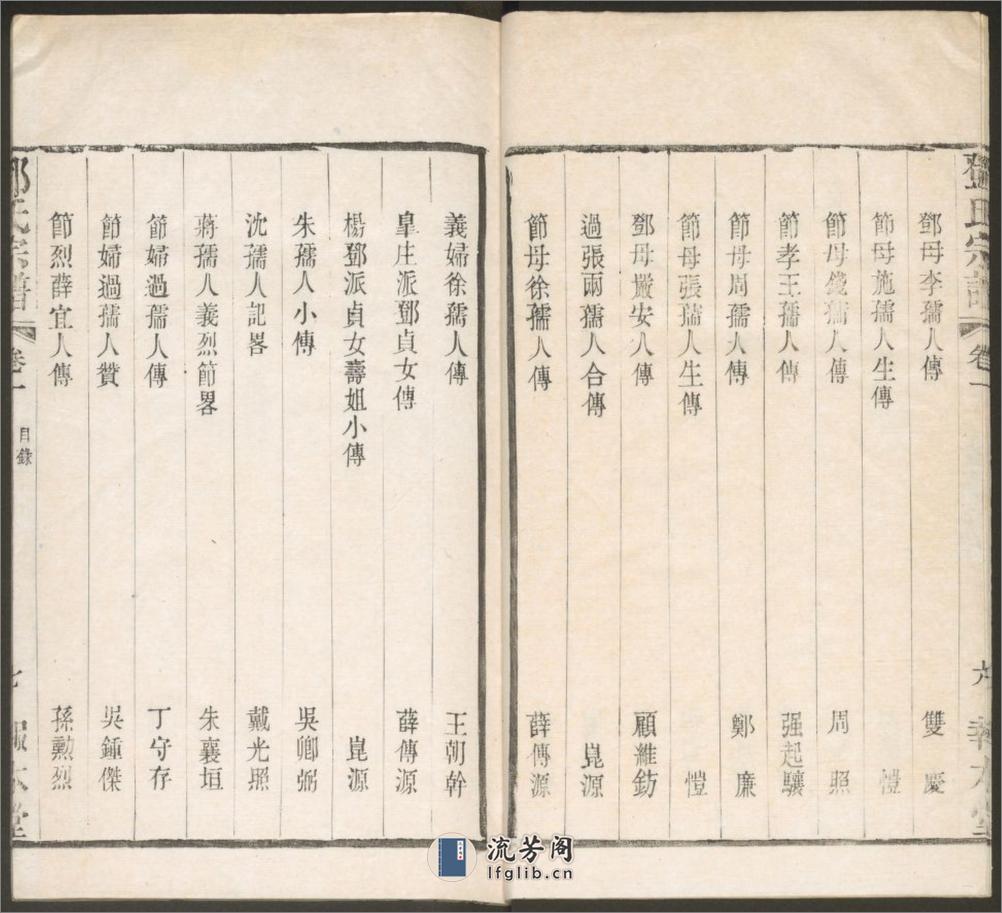 鄧氏宗譜 卷一 六
鄧母李孺人傳 雙慶
節母施孺人生傳 愷
節母錢孺人傳 周照
節孝王孺人傳 强起驤
節母周孺人傳 鄭廉
節母張孺人生傳 愷
鄧母嚴安人傳 顧維鈁
過張兩孺人合傳 崑源
節母徐孺人傳 薛傳源
義婦徐孺人傳 王朝幹
皐庄派鄧貞女傳 薛傳源
楊鄧派貞女壽姐小傳 崑源
朱孺人小傳 吳卿弼
沈孺人記畧 戴光照
蔣孺人義烈節畧 朱襄垣
節婦過孺人傳 丁守存
節婦過孺人贊 吳鍾傑
節烈薛宜人傳 孫勳烈
鄧氏宗譜 卷一 目錄 七
流芳阁
lfglib.cn